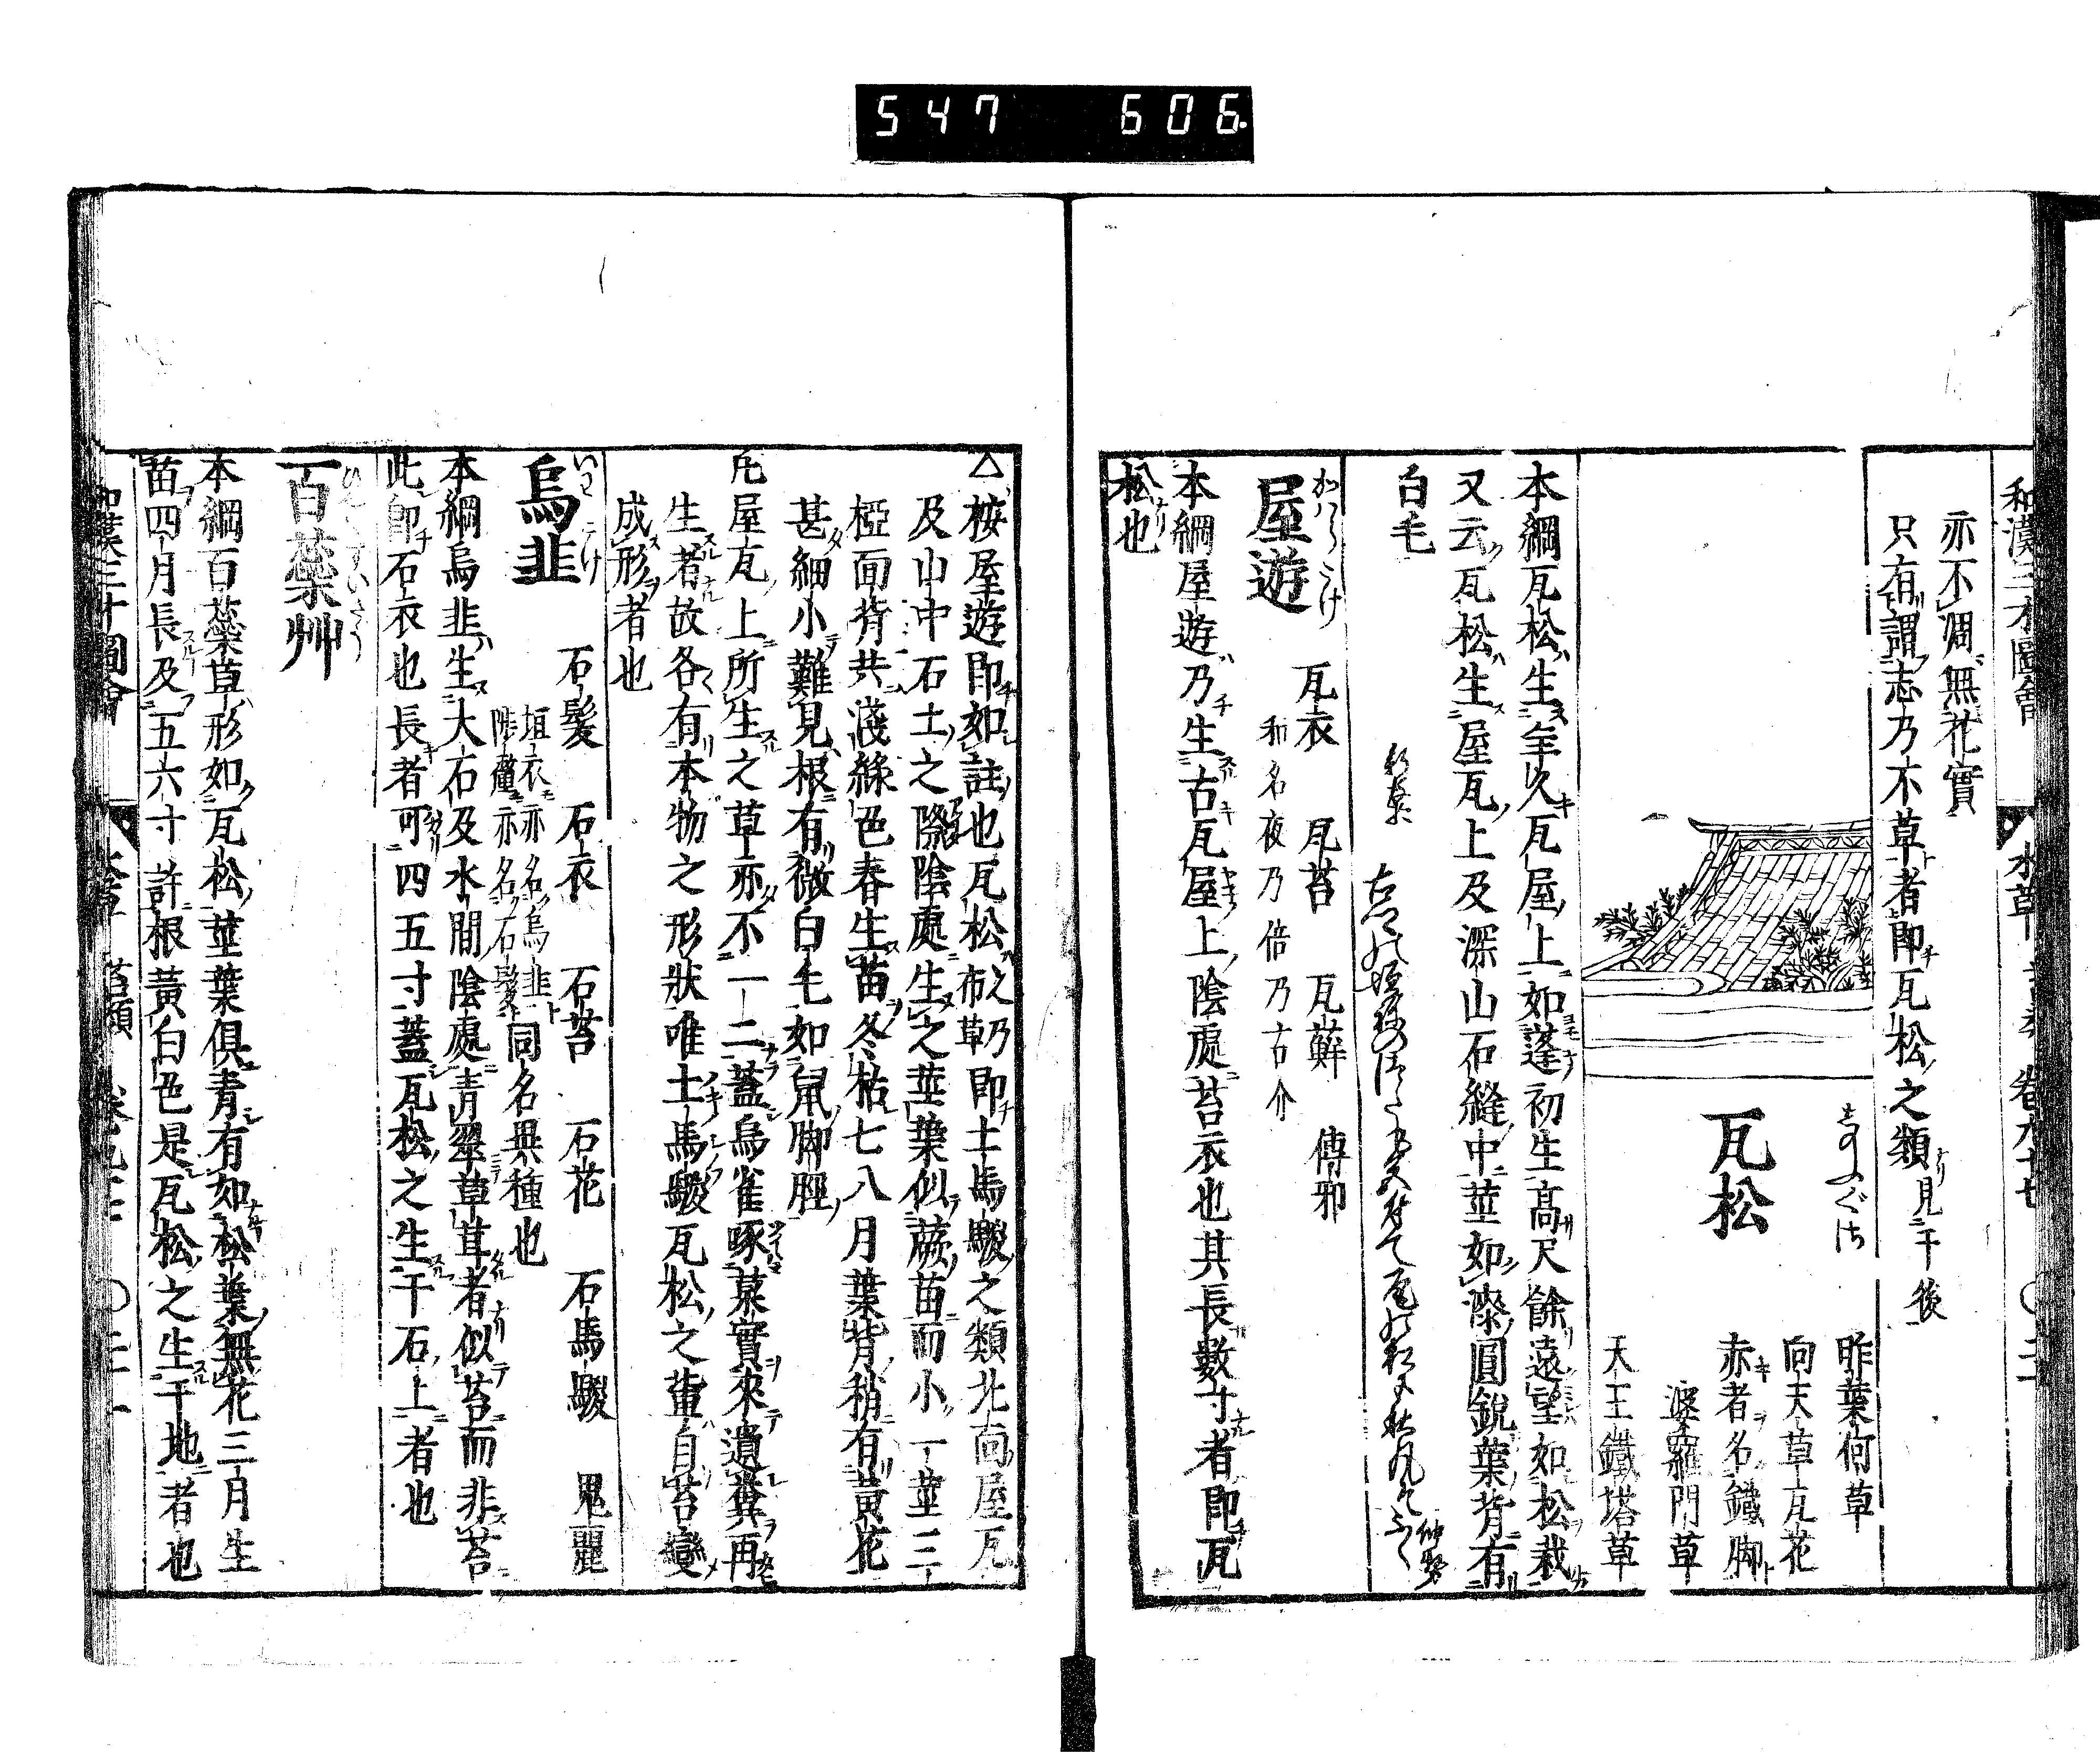 547 606
和漢三才圖會 水草 苔類 卷九十七 〇二十
亦不凋無花實
只有謂志乃不草者即瓦松之類見于後
瓦松
昨葉何草
向天草 瓦花
赤者名鐵脚
婆羅門草
天王鐵塔草
本綱瓦松生年久瓦屋上如蓬初生高尺餘遠望如松栽
又云瓦松生屋瓦上及深山石縫中莖如漆圓銳葉背有
白毛
屋遊
かはらごけ
瓦衣 瓦苔 瓦蘚 傳邪
和名夜乃倍乃古介
本綱屋遊乃生古瓦屋上陰處苔衣也其長數寸者即瓦
松也
△桉屋遊即如註也瓦松之乃布草即土馬騣之類北向屋瓦
及山中石土之際陰處生之莖葉似蕨苗而小一莖三
椏面背共淺綠色春生苗冬枯七八月葉背稍有黃花
甚細小難見根有微白毛如鼠脚脛
凡屋瓦上所生之草亦不一二蓋烏雀啄菓實來遺糞再
生者故各有本物之形狀唯土馬騣瓦松之軰自苔變
成形者也
烏韭
いはごけ
石髮 石衣 石苔 石花 石馬騣 鬼麗
垣衣亦名烏韭
陟釐亦名石髮 同名異種也
本綱烏韭生大石及水間陰處青翠草茸者似苔而非苔
此即石衣也長者可四五寸蓋瓦松之生于石上者也
百蘂艸
ひやくずいさう
本綱百蘂草形如瓦松莖葉俱青有如松葉無花三月生
苗四月長及五六寸許根黃白色是瓦松之生于地者也
和漢三才圖會 水草 苔類 卷九十七 〇二十一